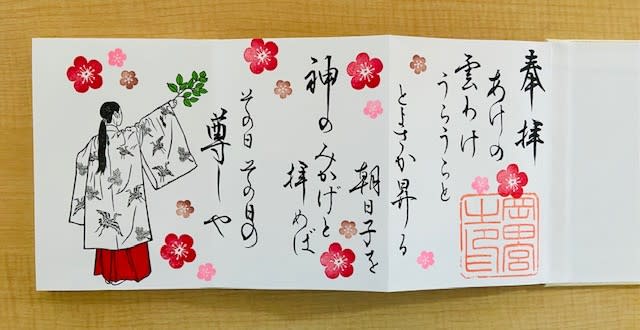 奉拝
あけの
雲わけ
うらうらと
とよさか昇る
朝日子を
神のみかげと
拝めば
その日その日の
尊しや
岡田宮
之印